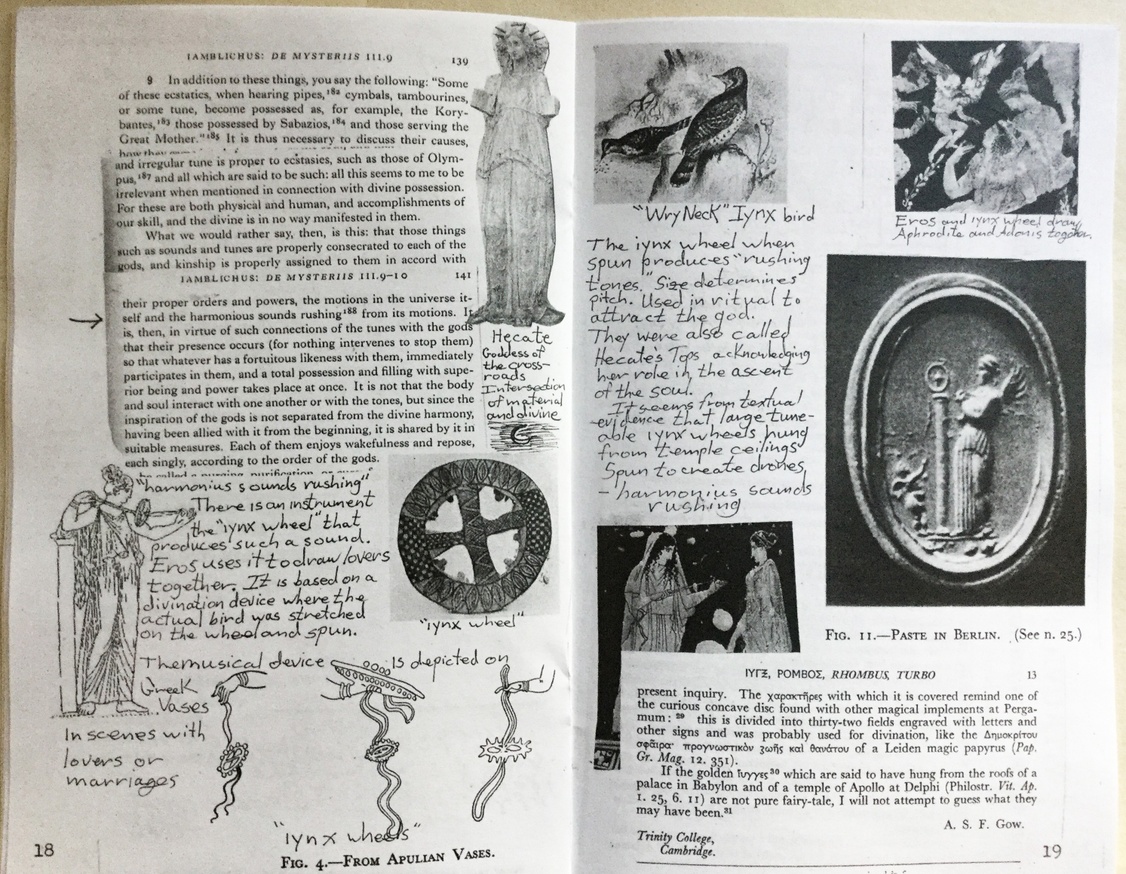 IAMBLICHUS: DE MYSTERIIS III.9
139
9 In addition to these things, you say the following: “Some
of these ecstatics, when hearing pipes,¹⁸² cymbals, tambourines,
or some tune, become possessed as, for example, the Kory-
bantes,¹⁸³ those possessed by Sabazios,¹⁸⁴ and those serving the
Great Mother.”¹⁸⁵ It is thus necessary to discuss their causes,
and irregular tune is proper to ecstasies, such as those of Olym-
pus,¹⁸⁷ and all which are said to be such: all this seems to me to be
irrelevant when mentioned in connection with divine possession.
For these are both physical and human, and accomplishments of
our skill, and the divine is in no way manifested in them.
What we would rather say, then, is this: that those things
such as sounds and tunes are properly consecrated to each of the
gods, and kinship is properly assigned to them in accord with
IAMBLICHUS: DE MYSTERIIS III.9–10
141
their proper orders and powers, the motions in the universe it-
self and the harmonious sounds rushing¹⁸⁸ from its motions. It
is, then, in virtue of such connections of the tunes with the gods
that their presence occurs (for nothing intervenes to stop them)
so that whatever has a fortuitous likeness with them, immediately
participates in them, and a total possession and filling with supe-
rior being and power takes place at once. It is not that the body
and soul interact with one another or with the tones, but since the
inspiration of the gods is not separated from the divine harmony,
having been allied with it from the beginning, it is shared by it in
suitable measures. Each of them enjoys wakefulness and repose,
each singly, according to the order of the gods.
Hecate
Goddess of
the cross-
roads
Intersection
of material
and divine
"harmonius sounds rushing"
There is an instrument
the "iynx wheel" that
produces such a sound.
Eros uses it to draw lovers
together. It is based on a
divination device where the
actual bird was stretched
on the wheel and spun.
"iynx wheel"
The musical device is depicted on
Greek
Vases
In scenes with
lovers or
marriages
"iynx wheels"
FIG. 4.—FROM APULIAN VASES.
18
"Wry Neck" Iynx bird
Eros and iynx wheel draw
Aphrodite and Adonis together
The iynx wheel when
spun produces "rushing
tones." Size determines
pitch. Used in ritual to
attract the god.
They were also called
Hecate's Tops acknowledging
her role in the ascent
of the soul.
It seems from textual
evidence that large tune-
able iynx wheels hung
from temple ceilings
Spun to create drones,
- harmonius sounds
rushing
FIG. 11.—PASTE IN BERLIN. (See n. 25.)
ΙΥΓΞ, ΡΟΜΒΟΣ, RHOMBUS, TURBO
13
present inquiry. The χαρακτῆρες with which it is covered remind one of
the curious concave disc found with other magical implements at Perga-
mum: ²⁹ this is divided into thirty-two fields engraved with letters and
other signs and was probably used for divination, like the Δημοκρίτου
σφαῖρα· προγνωστικὸν ζωῆς καὶ θανάτου of a Leiden magic papyrus (Pap.
Gr. Mag. 12. 351).
If the golden ἴυγγες³⁰ which are said to have hung from the roofs of a
palace in Babylon and of a temple of Apollo at Delphi (Philostr. Vit. Ap.
1. 25, 6. 11) are not pure fairy-tale, I will not attempt to guess what they
may have been.³¹
A. S. F. GOW.
Trinity College,
Cambridge.
19